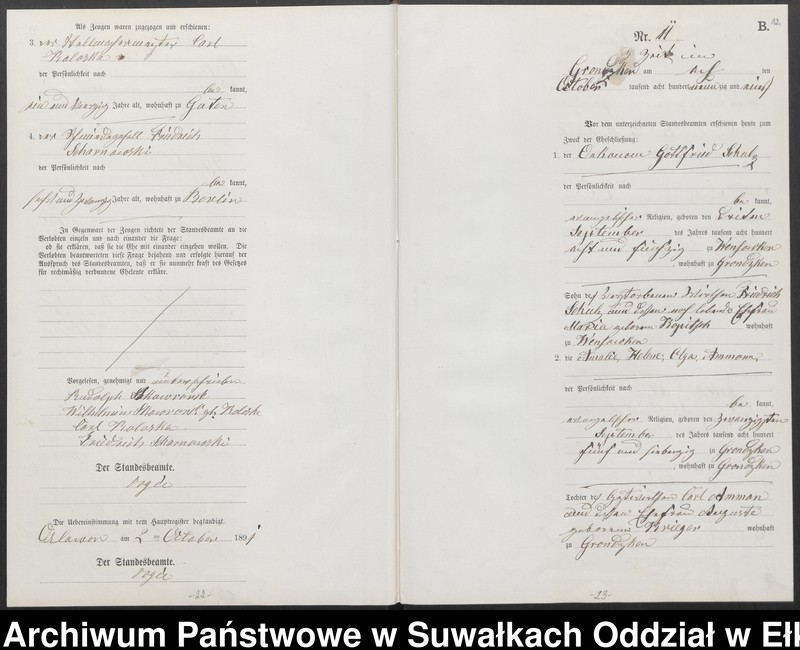 Als Zeugen waren zugezogen und erschienen:
3. der Stellmachermeister Carl
Kaloska
der Persönlichkeit nach
be kannt,
ein und vierzig Jahre alt, wohnhaft zu
4. der Schmiedegesell Friedrich
Scharnowski
der Persönlichkeit nach
be kannt,
sechs und zwanzig Jahre alt, wohnhaft zu Borelin
In Gegenwart der Zeugen richtete der Standesbeamte an die
Verlobten einzeln und nach einander die Frage:
ob sie erklären, daß sie die Ehe mit einander eingehen wollen. Die
Verlobten beantworteten diese Frage bejahend und erfolgte hierauf der
Ausspruch des Standesbeamten, daß er sie nunmehr kraft des Gesetzes
für rechtmäßig verbundene Eheleute erkläre.
Vorgelesen, genehmigt und unterschrieben
Rudolph Skawronek
Wilhelmine geb. Kalosk
Carl Kaloska
Friedrich Scharnowski
Der Standesbeamte.
Die Uebereinstimmung mit dem Hauptregister beglaubigt.
Orlowen am 2 ten October 1891
Der Standesbeamte.
-22-
B.
12.
Nr. 11
Grondzken am acht ten
October tausend acht hundert neunzig und eins
Vor dem unterzeichneten Standesbeamten erschienen heute zum
Zweck der Eheschließung:
1. der Oekonom Gottfried Schulz
der Persönlichkeit nach
be kannt,
evangelischer Religion, geboren den dritten
September des Jahres tausend acht hundert
acht und fünfzig zu Wensowken
, wohnhaft zu Grondzken
Sohn des verstorbenen Wirthen Friedrich
Schulz und dessen noch lebende Ehefrau
Maria geborene Kopitsch wohnhaft
zu Wensowken
2. die Amalie, Helene, Olga, Ammann
der Persönlichkeit nach
be kannt,
evangelischer Religion, geboren den zwanzigsten
September des Jahres tausend acht hundert
fünf und siebenzig zu Grondzken
, wohnhaft zu Grondzken
Tochter des Carl Amman
und dessen Ehefrau Auguste
geborenen Krieger wohnhaft
zu Grondzken
-23-
Archiwum Państwowe w Suwałkach Oddział w Ełk